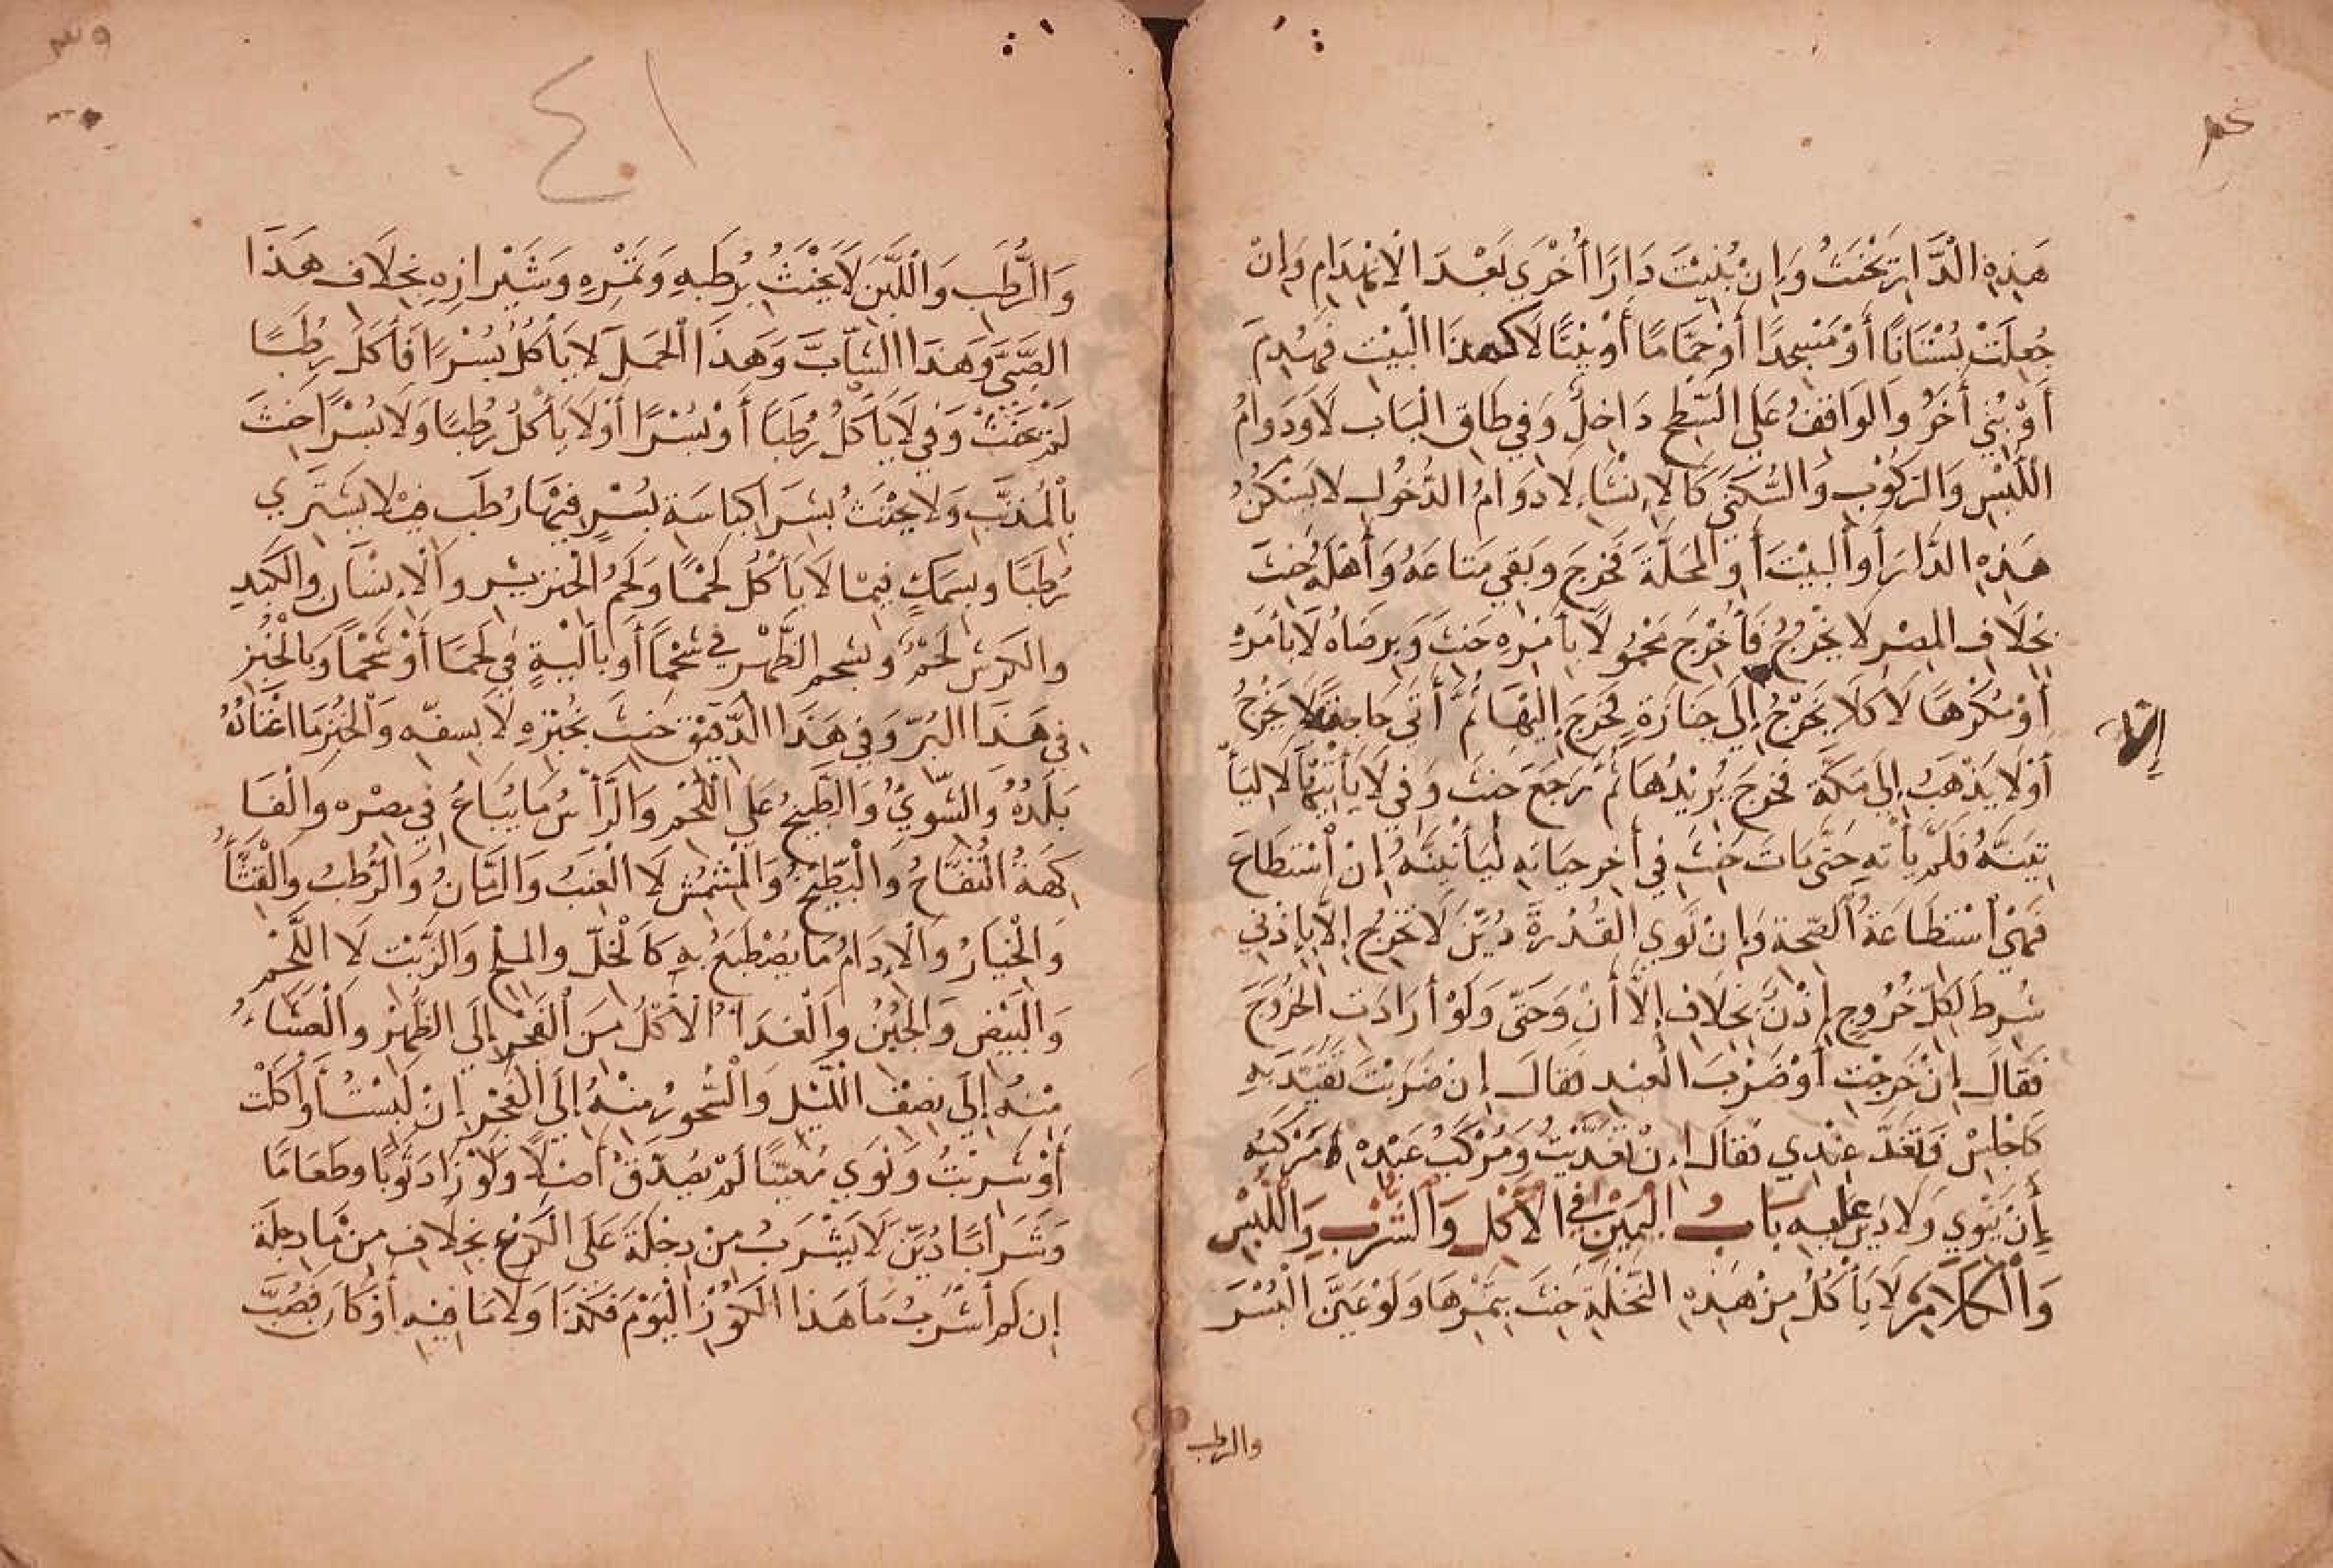 هَذِهِ الْدَّارَ يَحْنَثُ وَإِنْ بُنِيَتْ دَارًا أُخْرَي بَعْدَ الْاِنْهِدَامِ وَإِنْ
جُعِلَتْ بُسْتَانًا أَوْ مَسْجِدًا أَوْ حَمَّامًا أَوْ بَيْتًا لَا كهذَا الْبَيْتِ فَهُدِمَ
أَوْ بُنِيَ أَخَرُ وَالوَاقِفُ عَلَي السَّطْحِ دَاخِلٌ وَفِي طَاقِ الْبَابِ لَا وَدَوَامُ
اللُّبْسِ وَالرَّكُوْبِ وَالسُّكْنَي كَالْاِنْشَاءِ لَا دَوَامُ الدُّخُولِ لَا يَسْكُنُ
هَذِهِ الدَّارَ أَوِ الْبَيْتَ أَوِ الْمَحَلَّةَ فَخَرَجَ وَبَقِيَ مَتَاعَهُ وَأَهْلَهُ حَنِثَ
بِخِلَافِ المِصْرِ لَا يَخْرُجُ فَأُخْرِجَ مَحْمُولًا بِأَمْرِهِ حَنِثَ وَبِرِضَاهُ لَا بِأَمْرِهِ
أَوْ مُكْرَهًا لَا كَلَا يَخْرُجُ إِلَي جَنَازَةٍ فَخَرَجَ إِلَيْهَا ثُمَّ أَتَي حَاجَةً لَا يَخْرُجُ
إِلَّا
أَوْ لَا يَذْهَبُ إِلَي مَكَّةَ فَخَرَجَ يُرِيْدُهَا ثُمَّ رَجَعَ حَنِثَ وَفِي لَا يَأْتِيْهَا لَا لَيَأْ
تِيَنَّهُ فَلَمْ يَأْتِهِ حَتَّي مَاتَ حَنِثَ فِي أَخِرِ حَيَاتِهِ لَيَأْتِيَنَّهُ إِنْ اسْتَطَاعَ
فَهِيَ اسْتِطَاعَةُ الصِّحَّةِ وَإِنْ نَوَي القُدْرَةَ دُيِّنَ لَا تَخْرُجُ إِلَّا بِإِذْنِي
شُرِطَ لِكُلِّ خُرُوجٍ إِذْنٌ بِخِلَافِ إِلَّا أَنْ وَحَتَّي وَلَوْ أَرَادَتِ الْخُرُوجَ
فَقَالَ إِنْ خَرَجْتِ أَوْ ضَرْبَ الْعَبْدِ فَقَالَ إِنْ ضَرَبْتَ تَقَيَّدَ بِهِ
كَاجْلِسْ فَتَغَدَّ عِنْدِي فَقَالَ اِنْ تَغَدَّيْتُ وَمَرْكَبُ عَبْدِهِ كَمَرْكَبِهِ
إِنْ يَنْوِي وَلَا دَيْنَ عَلَيْهِ بَابُ الْيَمِيْنِ فِي الْأَكْلِ وَالشُّرْبِ وَاللُّبْسِ
وَالْكَلَامِ لَا يَأْكُلُ مِنْ هَذِهِ النَّخْلَةِ حَنِثَ بِثَمَرِهَا وَلَوْ عَيَّنَ الْبُسْرَ
والرطب
٤١
وَالرُّطَبِ وَاللَّبَنِ لَا يَحْنَثُ بِرُطَبِهِ وَتَمْرِهِ وَشَيْرَازِهِ بِخِلَافِ هَذَا
الصَّبِيَّ وَهَذَا الشَّابَّ وَهَذَا الْحَمَلَ لَا يَأْكُلُ بُسْرًا فَأَكَلَ رُطَبًا
لَمْ يَحْنَثْ وَفِي لَا يَأْكُلُ رُطَبًا أَوْ بُسْرًا أَوْ لَا يَأْكُلُ رُطَبًا وَلَا بُسْرًا حَنِثَ
بِالْمُذَنِّبِ وَلَا يَحْنَثُ بِشِرَا كِبَاسَةِ بُسْرٍ فِيْهَا رُطَبٌ فِيْ لَا يَشْتَرِي
رُطَبًا وبِسَمَكٍ فِيْمَا لَا يَأْكُلُ لَحْمًا وَلَحْمُ الْخِنْزِيْرِ وَالْاِنْسَانِ وَالْكَبِدِ
وَالْكَرِشِ لَحْمٌ وَبِشَحْمِ الظَّهْرِ فِي شَحْمًا أَوْ بِأَلْيَةٍ فِي لَحْمًا أَوْ شَحْمًا وَبِالْخُبْزِ
فِي هَذَا الْبُرِّ وَفِي هَذَا الدَّقِيْقِ حَنِثَ بِخُبْزِهِ لَا بِسَفِّهِ وَالْخُبْزُ مَا اعْتَادَهُ
بَلَدُهُ وَالشَّوِيُّ وَالطَّبِيْخُ عَلَي اللَّحْمِ وَالرَّأْسُ مَا يُبَاعُ فِي مِصْرِهِ وَالْفَا
كِهَةُ التُّفَّاحُ وَالْبِطِّيْخُ وَالْمِشْمِشُ لَا الْعِنَبُ وَالرُّمَّانُ وَالرُّطَبُ وَالْقِثَّأُ
وَالْخِيَارُ وَالْاِدَامُ مَا يُصْطَبَغُ بِهِ كَالْخَلِّ وَالْمِلْحِ وَالزَّيْتِ لَا اللَّحْمِ
وَالْبَيْضِ وَالْجُبْنِ وَالْغَدَاءُ الْأَكْلُ مِنَ الْفَجْرِ إِلَي الظُّهْرِ وَالْعَشَاءُ
مِنْهُ إِلَي نِصْفِ اللَّيْلِ وَالسَّحُورُ مِنْهُ إِلَي الْفَجْرِ إِنْ لَبِسْتُ أَوْ أَكَلْتُ
أَوْ شَرِبْتُ وَنَوَي مُعَيَّنًا لَمْ يُصَدَّقْ أَصْلًا وَلَوْ زَادَ ثَوْبًا وَطَعَامًا
وَشَرَابًا دُيِّنَ لَا يَشْرَبُ مِنْ دِجْلَةَ عَلَي الْكَرْعِ بِخِلَافِ مِنْ مَا دِجْلَةَ
إِنْ لَمْ أَشْرَبْ مَا هَذَا الْكَوْزِ الْيَوْمَ فَكَذَا وَلَا مَا فِيْهِ أَوْ كَانَ فَصُبَّ